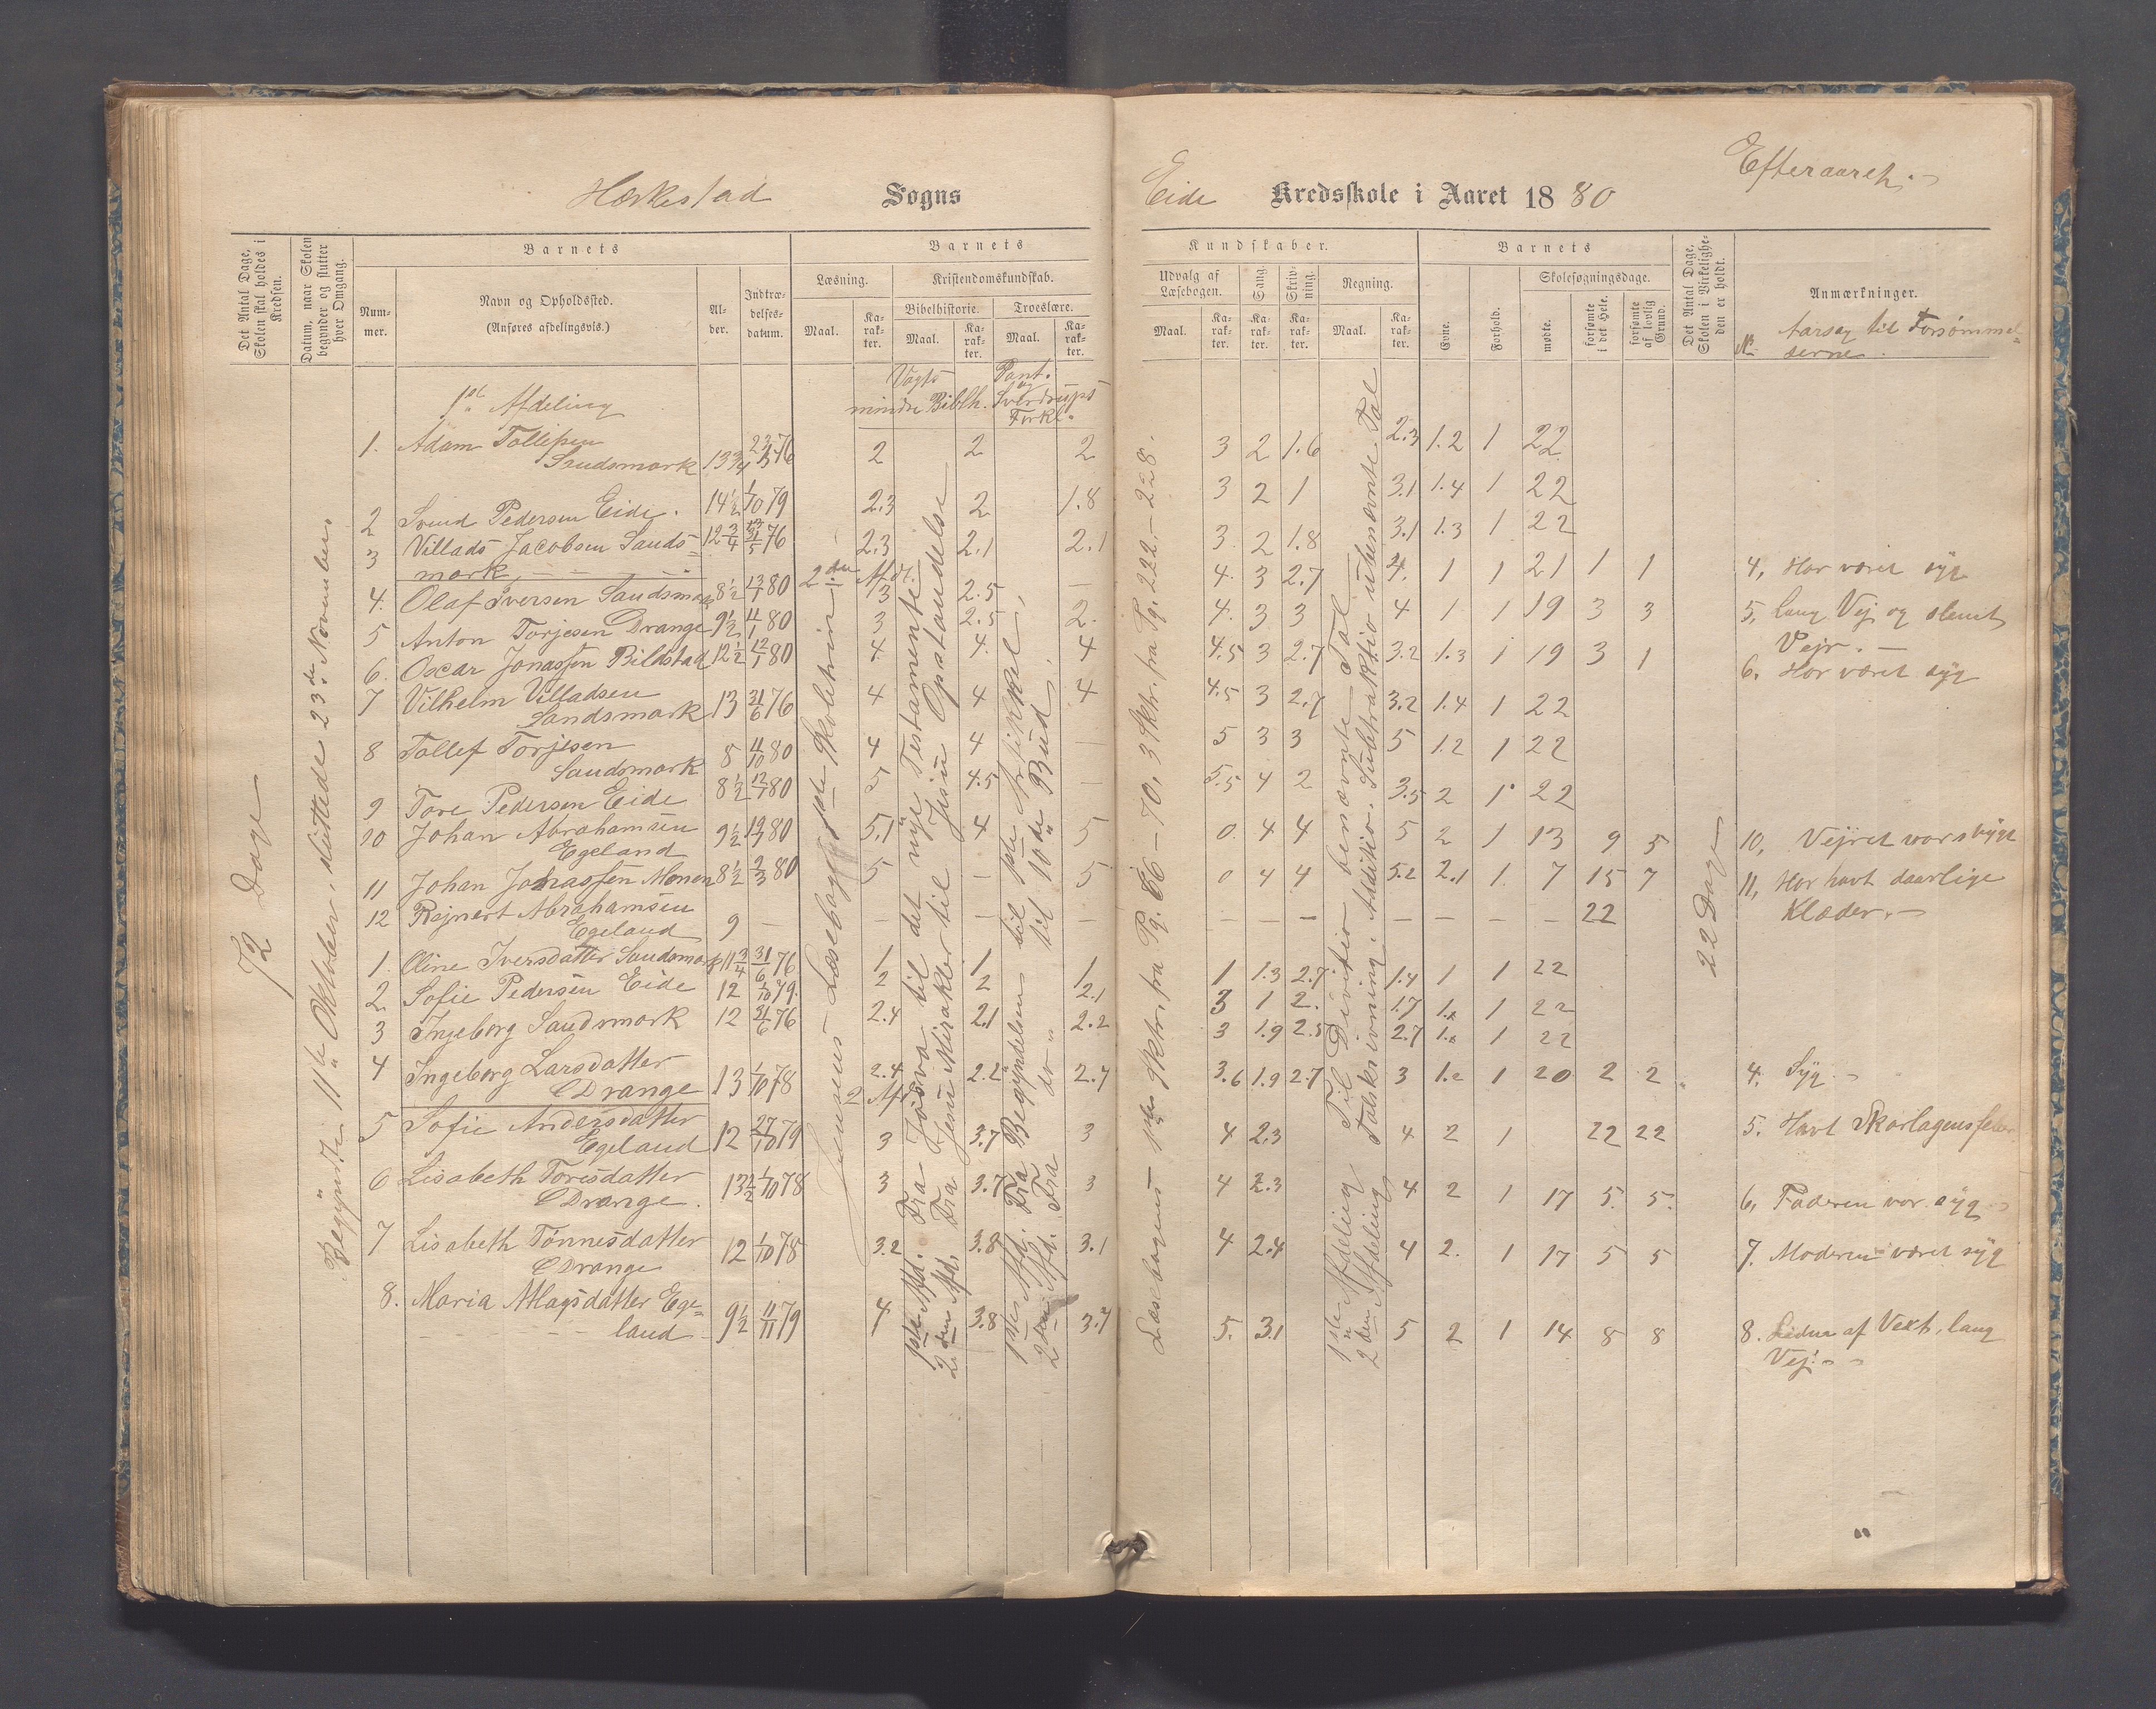 Efteraaret.
Hækestad Sogns
Eide Kredsskole i Aaret 1880
Det Antal Dage, Skolen skal holdes i Kredsen.
Datum, naar Skolen begynder og slutter hver Omgang.
Barnets
Nummer.
Navn og Opholdssted.
(Anføres afdelingsvis.)
Alder.
Indtrædelsesdatum.
Barnets
Læsning.
Maal.
Karakter.
Kristendomskundskab.
Bibelhistorie.
Maal.
Karakter.
Troeslære.
Maal.
Karakter.
Kundskaber.
Udvalg af Læsebogen.
Maal.
Karakter.
Sang.
Karakter.
Skrivning.
Karakter.
Regning.
Maal.
Karakter.
Barnets
Evne.
Forhold.
Skolesøgningsdage.
mødte.
forsømte i det Hele.
forsømte af lovlig Grund.
Det Antal Dage, Skolen i Virkeligheden er holdt.
Anmærkninger.
Aarsag til Forsømmelserne.
72 Dage
Begyndte 11te Oktober, sluttede 23de November
Vogts mindre Biblh.
Pont. og Sverdrups Forkl.
1ste Afdeling
1. Adam Tollefsen
Sandsmark 13 3/4 76 2 2 2 3 2 1.6 2.3 1.2 1 22
2 Svend Pedersen Eide. 14 1/2 1/10 79 2.3 2 1.8 3 2 1 3.1 1.4 1 22
3 Villads Jacobsen Sandsmark 12 3/4 76 2.3 2.1 2.1 3 2 1.8 3.1 1.3 1 22
2den Afdl.
4. Olaf Iversen Sandsmark 8 1/2 80 3 2.5 — 4. 3 2.7 4. 1 1 21 1 1 4, Har været syg
5 Anton Torjesen Drange 9 1/2 80 3 2.5 2. 4. 3 3 4 1 1 19 3 3 5, Lang Vej og slemt
Vejr. —
6. Oscar Jonassen Bilstad 12 1/2 12/1 80 4 4. 4 4.5 3 2.7 3.2 1.3 1 19 3 1 6. Har været syg
7 Vilhelm Villadsen
Sandsmark 13 21/6 76 4 4 4 4.5 3 2.7 3.2 1.4 1 22
8 Tollef Torjesen
Sandsmark 8 11/10 80 4 4 — 5 3 3 5 1.2 1 22
9 Tore Pedersen Eide 8 1/2 80 5 4.5 — 5.5 4 2 3.5 2 1 22
10 Johan Abrahamsen
Egeland 9 1/2 80 5.1 4 5 0. 4 4 5 2 1 13 9 5 10, Vejret var stygt
11 Johan Jonassen Monen 8 1/2 2/3 80 5 — 5 0 4 4 5.2 2.1 1. 7 15 7 11, Har havt daarlige
Klæder. —
12 Rejnert Abrahamsen
Egeland 9 — — — — — — — — — — — 22
1. Oline Iversdatter Sandsmark 11 3/4 76 1 1 1 1 1.3 2.7 1.4 1 1 22
2 Sofie Pedersen Eide 12 1/10 79. 2 2 2.1 3 1 2. 1.7 1 22
3 Ingeborg Sandsmark 12 21/6 76 2.4 2.1 2.2 3 1.9 2.5 2.7 1 22
4 Ingeborg Larsdatter
Drange 13 1/10 78 2.4 2.2 2.7 3.6 1.9 2.7 3 1.2 1 20 2 2 4. Syg. —
2 Afd.
5 Sofie Andersdatter
Egeland 12 27/10 79 3 3.7 3 4 2.3 4 2 1 22 22 5. Havt Skarlagensfeber
6 Lisabeth Torisdatter
Drange. 13 1/2 1/10 78 3 3.7 3 4 2.3 4 2 1 17 5. 5. 6, Faderen var syg
7 Lisabeth Tønnesdatter
Drange 12 1/10 78 3.2 3.8 3.1 4 2.4 4 2. 1 17 5 5 7. Moderen været syg
8. Maria Aslagsdatter Egeland 9 1/2 11/11 79 4 3.8 3.7 5. 3.1 5 2 1 14 8 8 8. Lidna af Vext, lang
Vej. —
Jensens Læsebogs 1ste Skoletrin
1ste Afd. Fra Josva til det nye Testamente
2den Afd. Fra Jesu Mirakler til Jesu Opstandelse
1ste Afd. Fra Begyndelsen til 1ste Artikkel,
2den Afd. Fra do „ til 10de Bud,
Læsebogens 1ste Sktr. fra Pg. 66 — 70, 3 Sktr. fra Pg. 222 — 228.
1ste Afdeling Til Division benævnte Tal
2den Afdeling Talskrivning. Addition. Subtraktion ubenævnte Tal
22 Dage